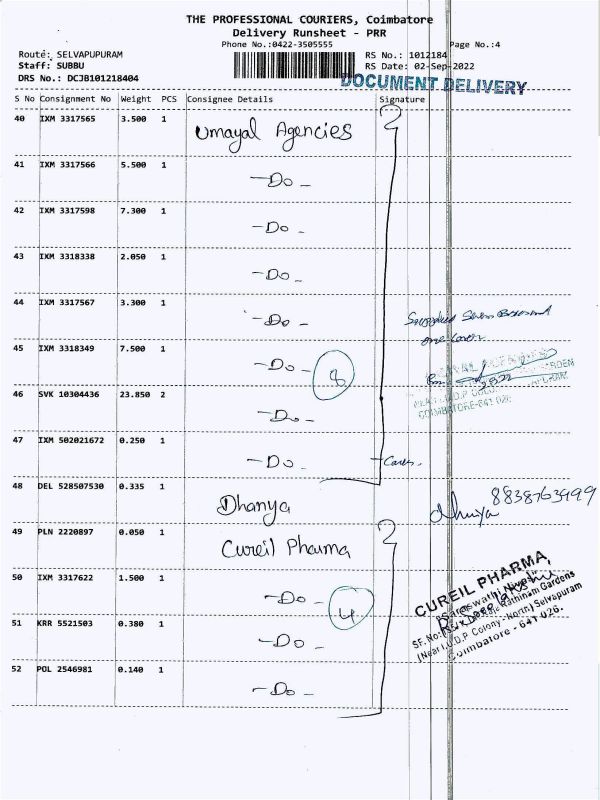 THE PROFESSIONAL COURIERS, Coimbatore
Delivery Runsheet - PRR
Phone No.:0422-3505555
Page No.:4
Route: SELVAPUPURAM
Staff: SUBBU
DRS No.: DCJB101218404
RS No.: 1012184
RS Date: 02-Sep-2022
DOCUMENT DELIVERY
S No Consignment No Weight PCS Consignee Details Signature
40 IXM 3317565 3.500 1 Umayal Agencies
41 IXM 3317566 5.500 1 -Do-
42 IXM 3317598 7.300 1 -Do-
43 IXM 3318338 2.050 1 -Do-
44 IXM 3317567 3.300 1 -Do-
one cover
45 IXM 3318349 7.500 1 -Do- 8
46 SVK 10304436 23.850 2 -Do-
COIMBATORE-641 026
47 IXM 502021672 0.250 1 -Do-
48 DEL 528507530 0.335 1 Dhanya
8838763499
49 PLN 2220897 0.050 1 Cureil Pharma
50 IXM 3317622 1.500 1 -Do- 4
51 KRR 5521503 0.380 1 -Do-
52 POL 2546981 0.140 1 -Do-
CUREIL PHARMA,
Rathinam Gardens
(Near I.U.D.P Colony - North) Selvapuram
Coimbatore - 641 026.